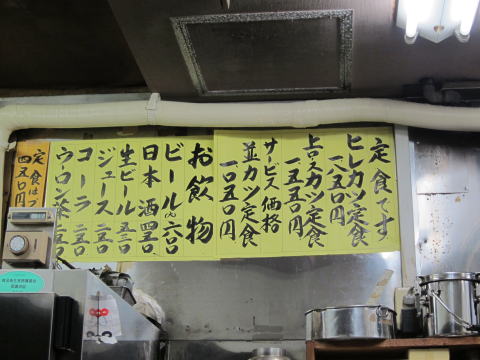 定食です
ヒレカツ定食
一八五〇円
上ロースカツ定食
一五五〇円
サービス価格
並カツ定食
一〇五〇円
お飲物
ビール(小)六〇〇
日本酒四五〇
生ビール五三〇
ジュース二五〇
コーラ二五〇
ウーロン茶二五〇
定食は
四五〇円